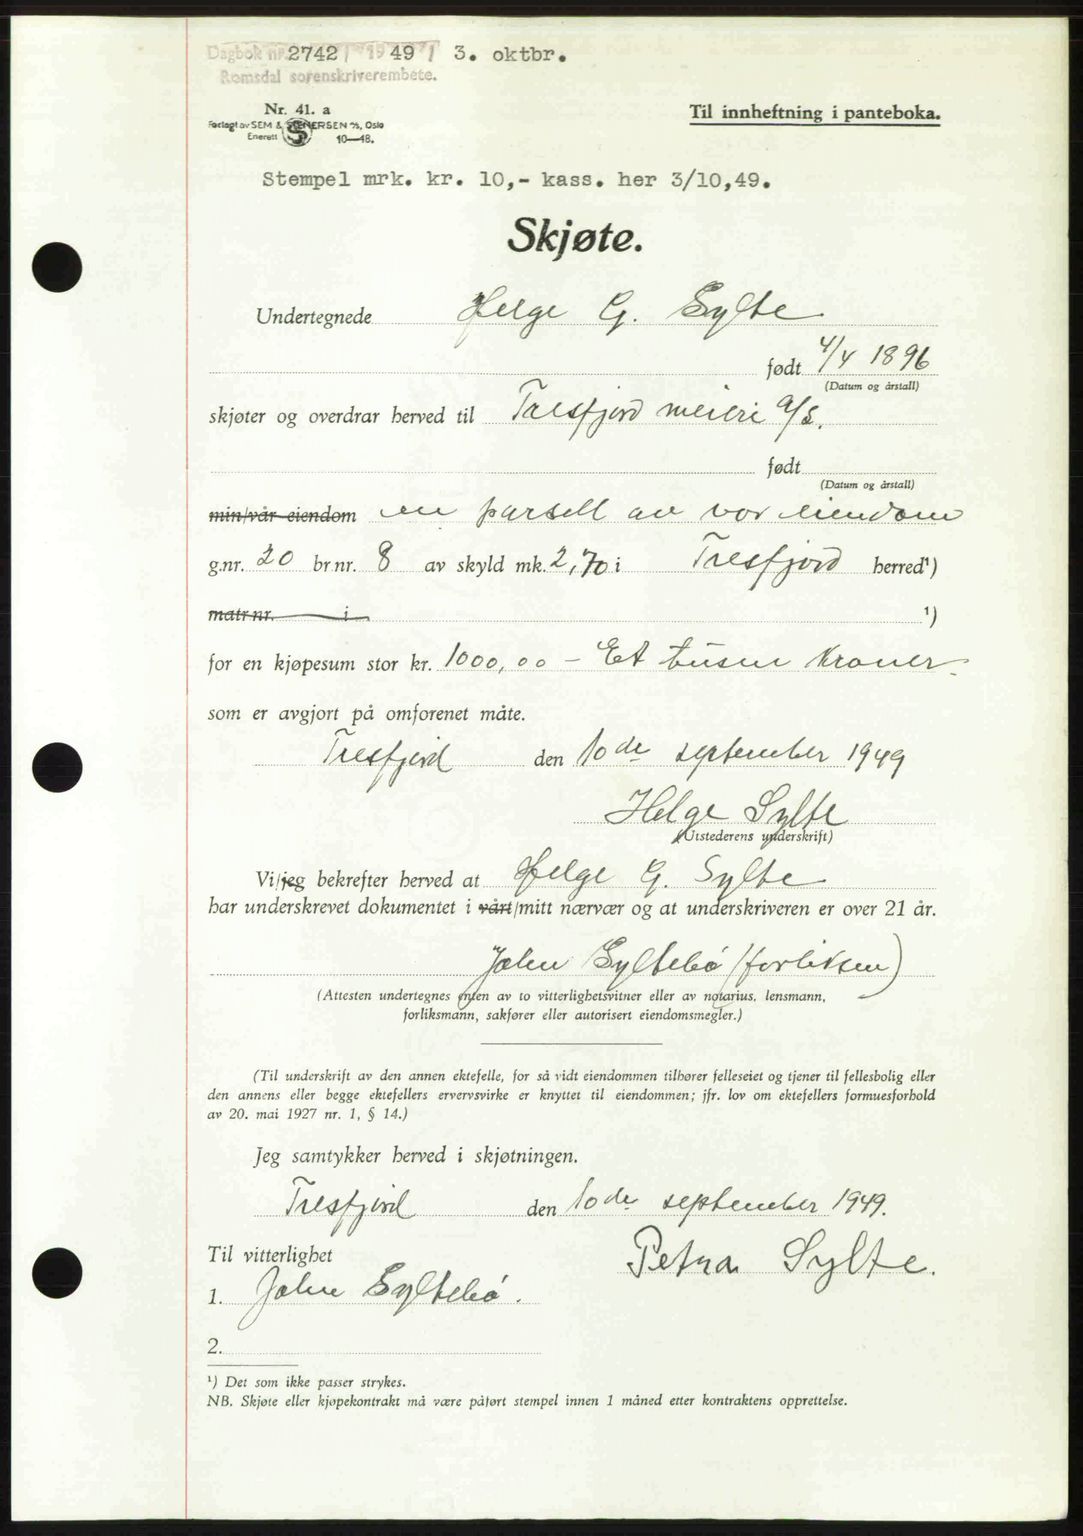 Dagbok nr. 2742 / 1949 / 3. oktbr.
Romsdal sorenskriverembete.
Nr. 41. a
Forlagt av SEM & STENERSEN A/S, Oslo
Enerett 10—48.
Til innheftning i panteboka.
Stempel mrk. kr. 10,- kass. her 3/10,49.
Skjøte.
Undertegnede Helge G. Sylte
født 4/4 1896
(Datum og årstall)
skjøter og overdrar herved til Tresfjord meieri a/s.
født
(Datum og årstall)
min/vår eiendom en parsell av vor eiendom
g.nr. 20 br.nr. 8 av skyld mk. 2,70 i Tresfjord herred¹)
matr.nr. i ¹)
for en kjøpesum stor kr. 1000,00 - Et tusen kroner -
som er avgjort på omforenet måte.
Tresfjord den 10de september 1949
Helge Sylte
(Utstederens underskrift)
Vi/jeg bekrefter herved at Helge G. Sylte
har underskrevet dokumentet i vårt/mitt nærvær og at underskriveren er over 21 år.
John Syltebø (forliksm)
(Attesten undertegnes enten av to vitterlighetsvitner eller av notarius, lensmann,
forliksmann, sakfører eller autorisert eiendomsmegler.)
(Til underskrift av den annen ektefelle, for så vidt eiendommen tilhører felleseiet og tjener til fellesbolig eller
den annens eller begge ektefellers ervervsvirke er knyttet til eiendommen; jfr. lov om ektefellers formuesforhold
av 20. mai 1927 nr. 1, § 14.)
Jeg samtykker herved i skjøtningen.
Tresfjord den 10de september 1949.
Til vitterlighet
Petra Sylte.
1. John Syltebø.
2.
¹) Det som ikke passer strykes.
NB. Skjøte eller kjøpekontrakt må være påført stempel innen 1 måned etter kontraktens opprettelse.